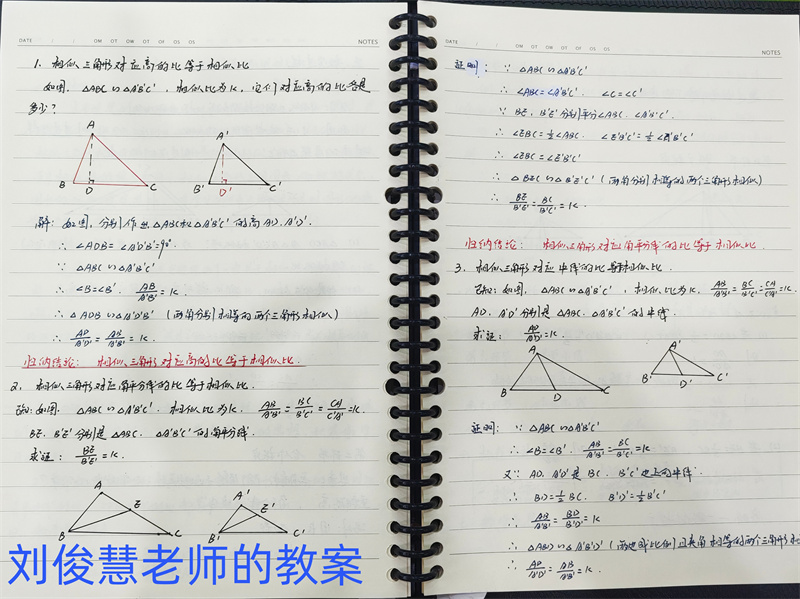 DATE / / OM OT OW OT OF OS OS NOTES
1. 相似三角形对应高的比等于相似比
如图. △ABC∽△A'B'C', 相似比为k, 它们对应高的比各是
多少?
A
A'
B D C B' D' C'
解: 如图, 分别作出△ABC和△A'B'C'的高AD. A'D'.
∴ ∠ADB=∠A'D'B'=90°
∵ △ABC∽△A'B'C'
∴ ∠B=∠B'. AB/A'B'=k.
∴ △ADB∽△A'D'B' (两角分别相等的两个三角形相似)
∴ AD/A'D'=AB/A'B'=k.
归纳结论: 相似三角形对应高的比等于相似比.
2. 相似三角形对应角平分线的比等于相似比.
已知: 如图. △ABC∽△A'B'C'. 相似比为k. AB/A'B'=BC/B'C'=CA/C'A'=k.
BE, B'E'分别是△ABC. △A'B'C'的角平分线.
求证: BE/B'E'=k.
A A'
E E'
B C B' C'
刘俊慧老师的教案
DATE / / OM OT OW OT OF OS OS NOTES
证明: ∵ △ABC∽△A'B'C'
∴ ∠ABC=∠A'B'C' ∠C=∠C'
∵ BE, B'E'分别平分∠ABC. ∠A'B'C'.
∴ ∠EBC=½∠ABC. ∠E'B'C'=½∠A'B'C'
∴ ∠EBC=∠E'B'C'
∴ △BEC∽△B'E'C' (两角分别相等的两个三角形相似)
∴ BE/B'E'=BC/B'C'=k.
归纳结论: 相似三角形对应角平分线的比等于相似比.
3. 相似三角形对应中线的比等于相似比.
已知: 如图. △ABC∽△A'B'C', 相似比为k. AB/A'B'=BC/B'C'=CA/C'A'=k.
AD. A'D'分别是△ABC. △A'B'C'的中线.
求证: AD/A'D'=k.
A A'
B D C B' D' C'
证明: ∵ △ABC∽△A'B'C'
∴ ∠B=∠B'. AB/A'B'=BC/B'C'=k
又∵ AD. A'D'是BC. B'C'边上的中线.
∴ BD=½BC. B'D'=½B'C'
∴ AB/A'B'=BD/B'D'=k
∴ △ABD∽△A'B'D' (两边成比例且夹角相等的两个三角形相
∴ AD/A'D'=AB/A'B'=k.